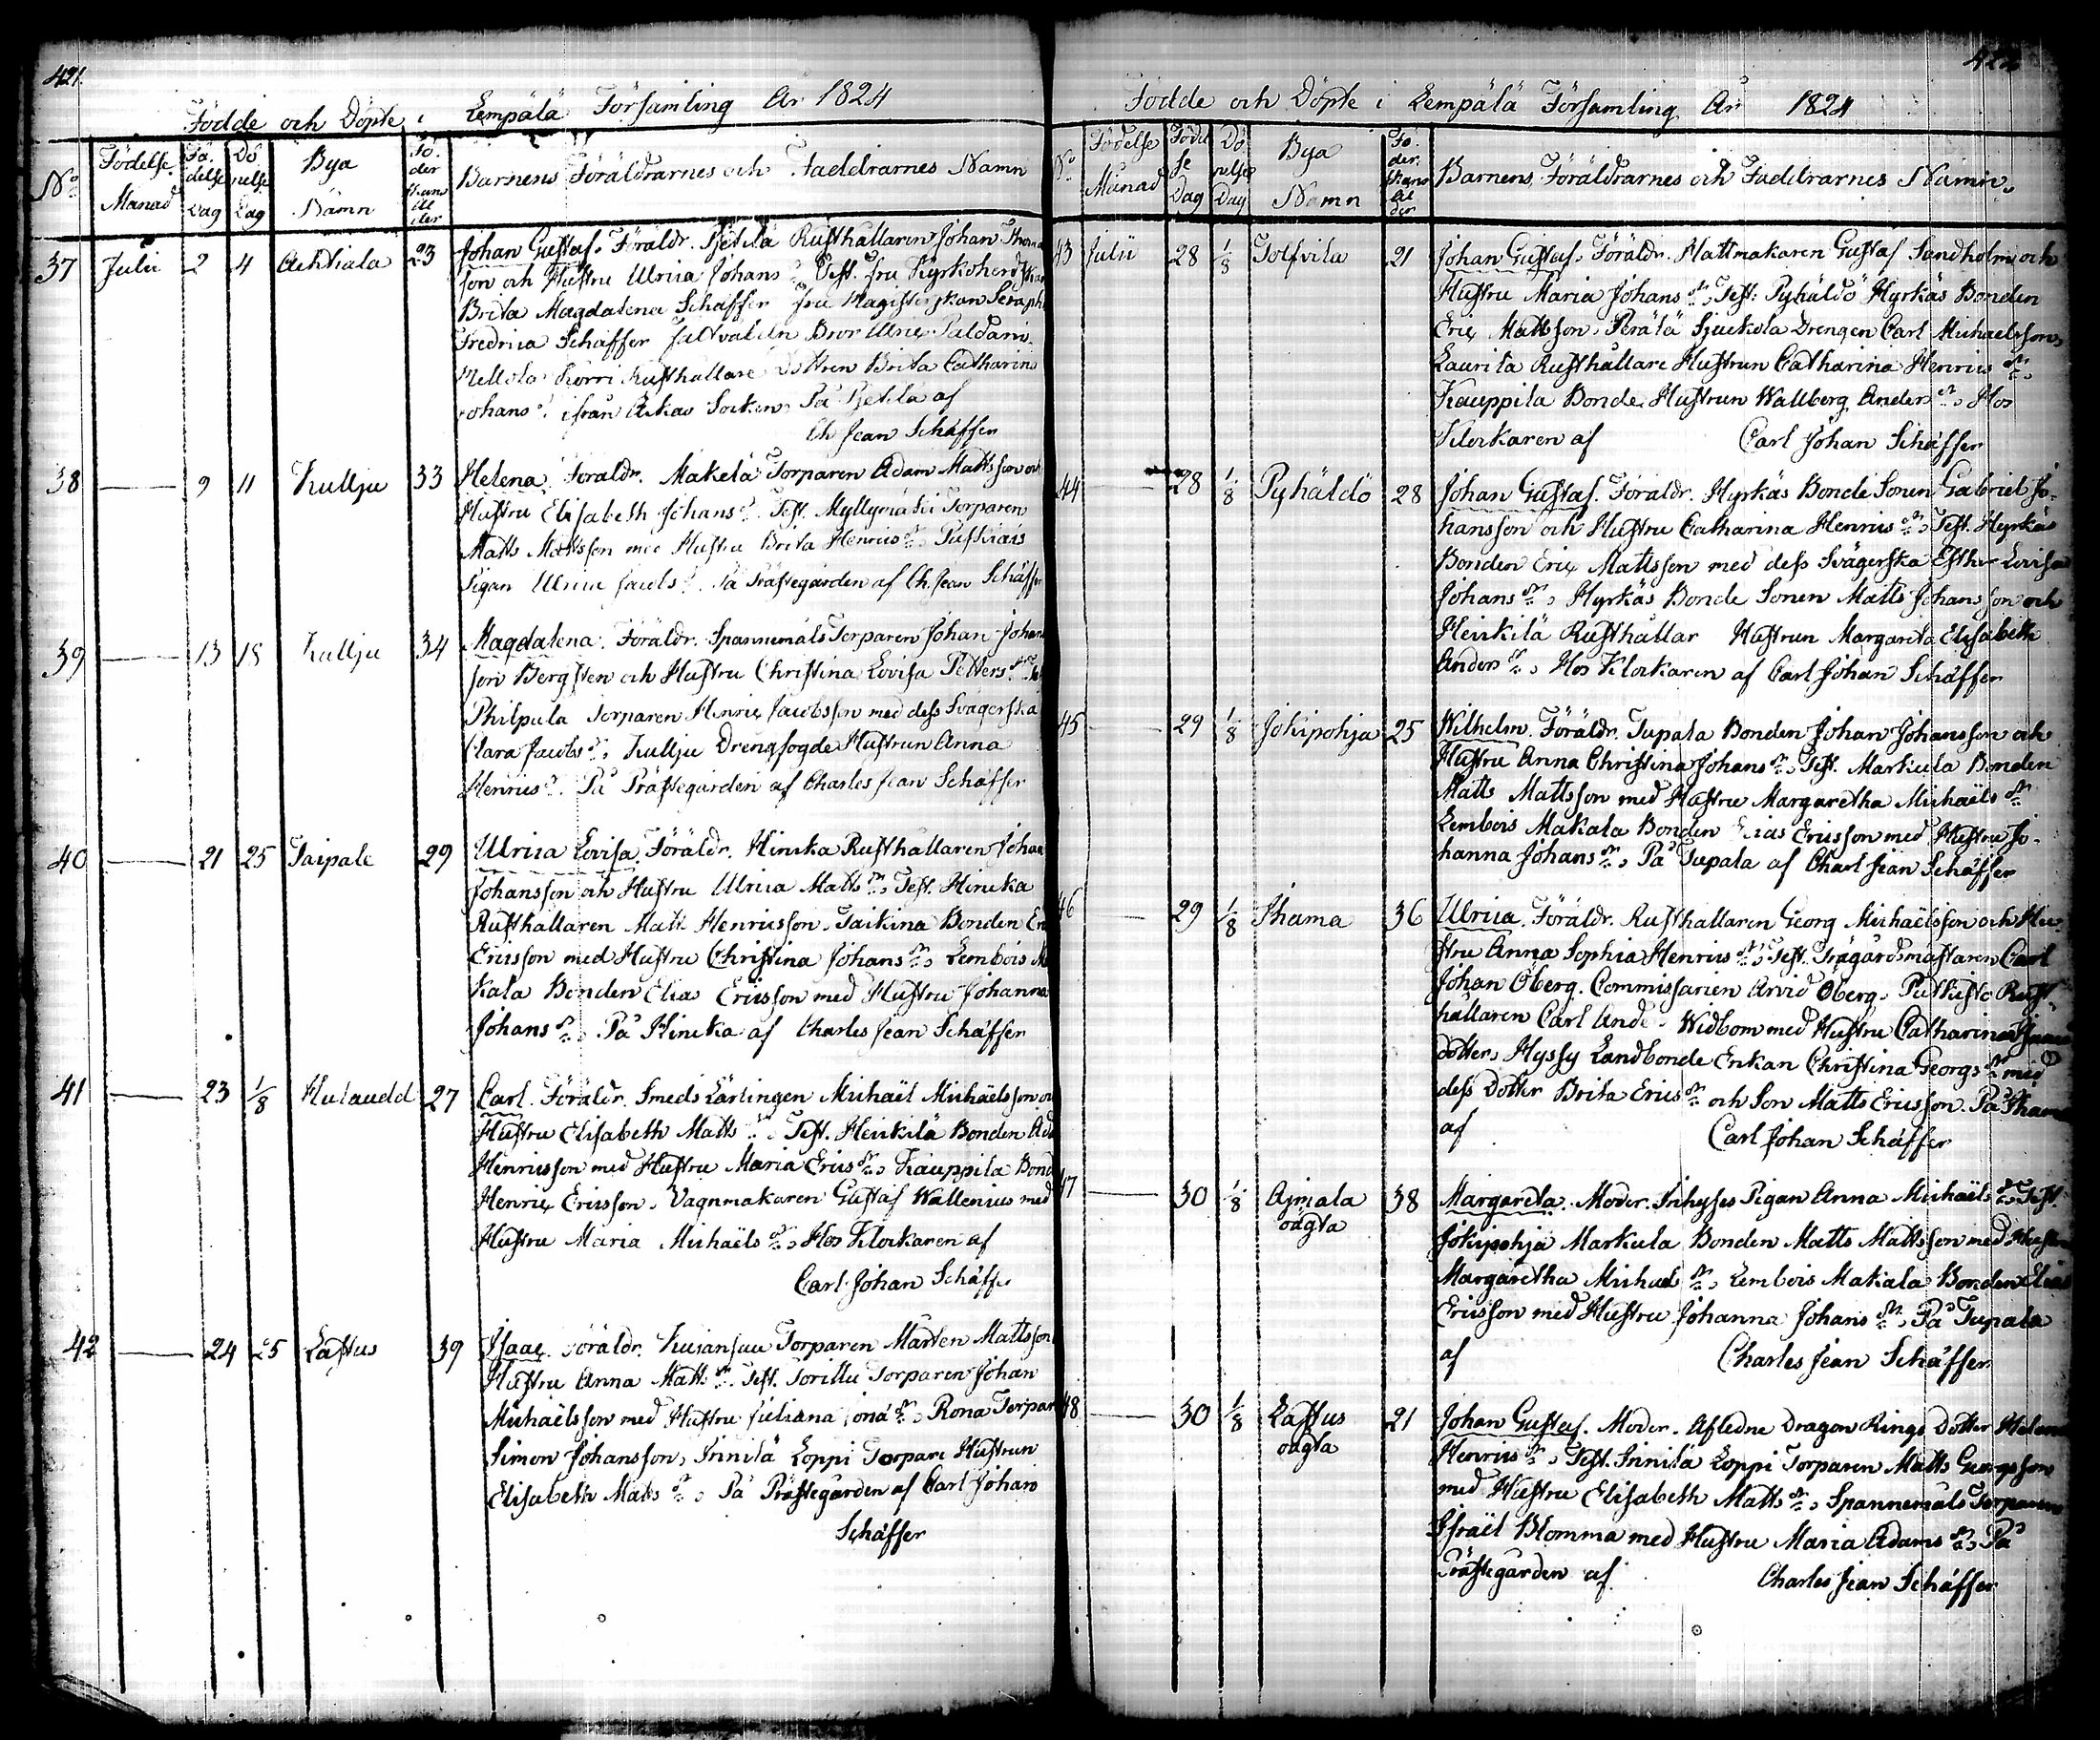 421.
Födde och Döpte i Lempälä Församling År 1824
No Födelse Månad Födelse Dag Döpelse Dag Bya Namn Föderskans Ålder Barnens Föräldrarnes och Faddrarnes Namn
37 Julii 2 4 Ahtiala 23 Johan Gustaf. Föräldr. Pjetilä Rusthållaren Johan Thomas
son och Hustru Ulrica Johans dr. Test. fru Kyrkoherdskan
Brita Magdalena Schäffer fru Magisterskan Seraph
Fredrica Schäffer Bror Ulric Paldani
Mellola Korri Rusthållare Dottren Brita Catharina
Johans dr ifrån Akas Socken. På Pjetilä af
Ch Jean Schäffer
38 — 9 11 Kullju 33 Helena. Föräldr. Makelä Torparen Adam Mattsson och
Hustru Elisabeth Johans dr. Test. Myllymäki Torparen
Matts Mattsson med Hustru Brita Henrics dr.
Pigan Ulrica Jacobs dr. På Prästegården af Ch. Jean Schäffer
39 — 13 18 Kullju 34 Magdalena. Föräldr. Spannemåls Torparen Johan Johan
son Bergsten och Hustru Christina Lovisa Petters dr.
Philpula Torparen Henric Jacobsson med dess Svägerska
Clara Jacobs dr, Kullju Drengfogde Hustrun Anna
Henrics dr. På Prästegården af Charles Jean Schäffer
40 — 21 25 Taipale 29 Ulrica Lovisa. Föräldr. Hincka Rusthållaren Johan
Johansson och Hustru Ulrica Matts dr, Test. Hincka
Rusthållaren Matts Henricsson. Taikina Bonden
Ericsson med Hustru Christina Johans dr, Lembois Ma
kala Bonden Elias Ericsson med Hustru Johanna
Johans dr, På Hincka af Charles Jean Schäffer
41 — 23 1/8 Hulaudd 27 Carl. Föräldr. Smeds Lärlingen Michaël Michaëlsson
Hustru Elisabeth Matts dr. Test. Heickilä Bonden Adam
Henricsson med Hustru Maria Erics dr, Kauppila Bond
Henric Ericsson. Vagnmakaren Gustaf Wallenius med
Hustru Maria Michaëls dr, Hos Klockaren af
Carl Johan Schäffer
42 — 24 25 Lastus 39 Isaac. Föräldr. Kujansuu Torparen Mårten Mattsson
Hustru Anna Matts dr. Test. Torillu Torparen Johan
Michaëlsson med Hustru Juliana Jona dr, Rona Torpar
Simon Johansson, Innilä Loppi Torpare Hustrun
Elisabeth Matts dr, På Prästegården af Carl Johan
Schäffer
422
Födde och Döpte i Lempälä Församling År 1824
No Födelse Månad Födelse Dag Döpelse Dag Bya Namn Föderskans Ålder Barnens, Föräldrarnes och Faddrarnes Namn.
43 Julii 28 1/8 Tolfvila 21 Johan Gustaf. Föräldr. Hattmakaren Gustaf Sandholm och
Hustru Maria Johans dr, Test. Pyhäldö Hyrkäs Bonden
Eric Mattsson. Perälä Sjuckola Drengen Carl Michaelsson,
Laurila Rusthållare Hustrun Catharina Henrics dr,
Kauppila Bonde Hustrun Wallberg Anders dr, Hos
Klockaren af Carl Johan Schäffer
44 — 28 1/8 Pyhäldö 28 Johan Gustaf. Föräldr. Hyrkäs Bonde Sonen Gabriel Jo-
hansson och Hustru Catharina Henrics dr, Test. Hyrkäs
Bonden Eric Mattsson med dess Svägerska Esther Lovisa
Johans dr, Hyrkäs Bonde Sonen Matts Johansson och
Heickilä Rusthållar Hustrun Margareta Elisabeth
Anders dr, Hos Klockaren af Carl Johan Schäffer
45 — 29 1/8 Jokipohja 25 Wilhelm. Föräldr. Tupala Bonden Johan Johansson och
Hustru Anna Christina Johans dr, Test. Markula Bonden
Matts Mattsson med Hustru Margaretha Michaëls dr
Lembois Makala Bonden Elias Ericsson med Hustru Jo-
hanna Johans dr, På Tupala af Charl Jean Schäffer
46 — 29 1/8 Ihama 36 Ulrica. Föräldr. Rusthållaren Georg Michaëlsson och Hu-
stru Anna Sophia Henrics dr, Test. Trägårdsmästaren Carl
Johan Öberg. Commissarien Arvid Öberg. Putkisto Rust-
hållaren Carl Widbom med Hustru Catharina
dotter, Hyssy Landbonde Enkan Christina Georgs dr med
dess Dotter Brita Erics dr och Son Matts Ericsson. På Ihama
af Carl Johan Schäffer
47 — 30 1/8 Ajmala oägta 38 Margareta. Moder. Inhyses Pigan Anna Michaëls dr, Test.
Jokipohja Markula Bonden Matts Mattsson med Hustru
Margaretha Michaels dr, Lembois Makala Bonden Elias
Ericsson med Hustru Johanna Johans dr, På Tupala
af Charles Jean Schäffer
48 — 30 1/8 Lastus oägta 21 Johan Gustaf. Moder. Afledne Dragon Rings Dotter Helena
Henrics dr, Test. Innilä Loppi Torparen Matts Georgsson
med Hustru Elisabeth Matts dr, Spannemåls Torparen
Israël Blomma med Hustru Maria Adams dr, På
Prästegården af Charles Jean Schäffer